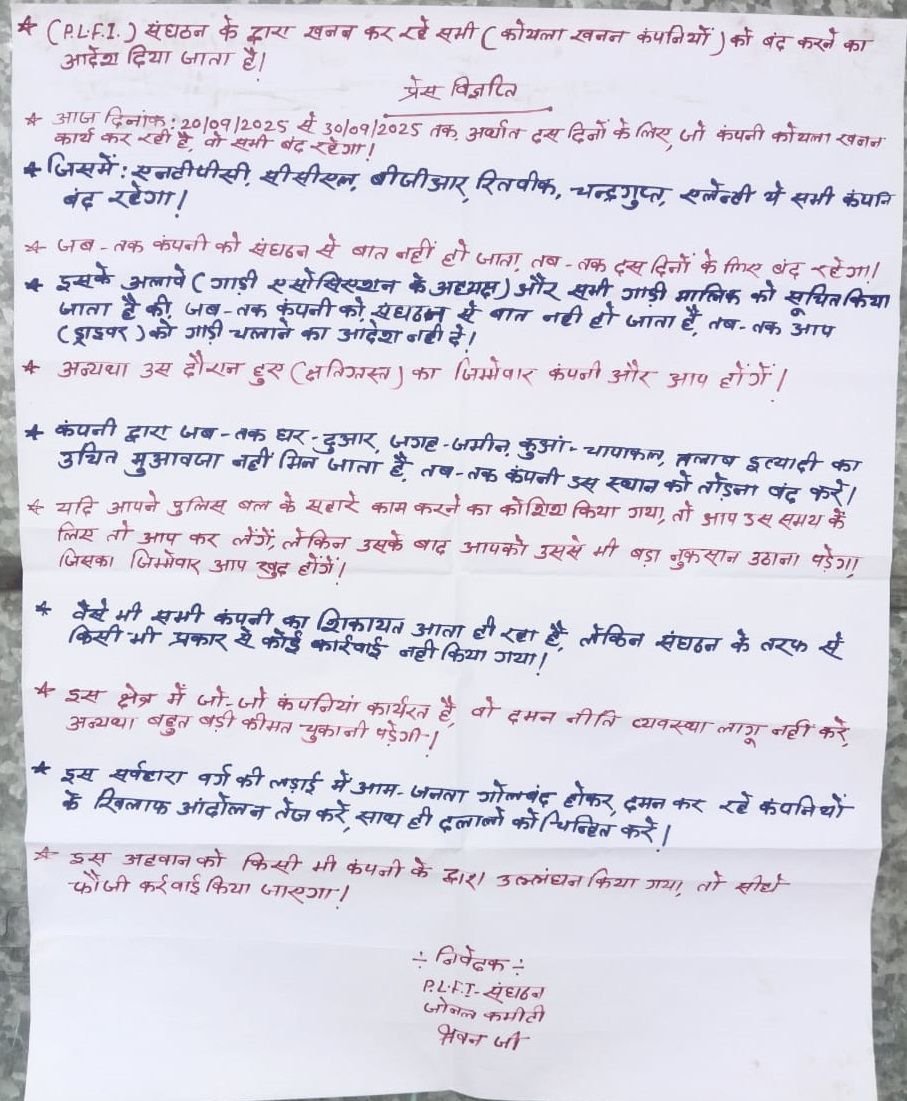 * (P.L.F.I.) संघठन के द्वारा खनन कर रहे सभी (कोयला खनन कंपनियों) को बंद करने का
आदेश दिया जाता है।
प्रेस विज्ञप्ति
* आज दिनांक: 20/09/2025 से 30/09/2025 तक, अर्थात दस दिनों के लिए, जो कंपनी कोयला खनन
कार्य कर रही है, वो सभी बंद रहेगा!
* जिसमें: एनटीपीसी, सीसीएल, बीजीआर, रितवीक, चन्द्रगुप्त, एलेन्टी ये सभी कंपनि
बंद रहेगा!
* जब-तक कंपनी को संघठन से बात नहीं हो जाता, तब-तक दस दिनों के लिए बंद रहेगा।
* इसके अलावे (गाड़ी एसोसिएशन के अध्यक्ष) और सभी गाड़ी मालिक को सूचित किया
जाता है की, जब-तक कंपनी को, संघठन से बात नही हो जाता है, तब-तक आप
(ड्राइवर) को गाड़ी चलाने का आदेश नही दें!
* अन्यथा उस दौरान हुए (क्षतिग्रस्त) का जिम्मेवार कंपनी और आप होंगें!
* कंपनी द्वारा जब-तक घर-दुआर, जगह-जमीन, कुआं-चापाकल, तलाब इत्यादी का
उचित मुआवजा नहीं मिल जाता है, तब-तक कंपनी उस स्थान को तोड़ना बंद करें।
* यदि आपने पुलिस बल के सहारे काम करने का कोशिश किया गया, तो आप उस समय के
लिए तो आप कर लेंगें, लेकिन उसके बाद आपको उससे भी बड़ा नुकसान उठाना पड़ेगा,
जिसका जिम्मेवार आप खुद होंगें!
* वैसे भी सभी कंपनी का शिकायत आता ही रहा है, लेकिन संघठन के तरफ से
किसी भी प्रकार से कोई कार्रवाई नही किया गया!
* इस क्षेत्र में जो-जो कंपनियां कार्यरत है, वो दमन नीति व्यवस्था लागू नहीं करें,
अन्यथा बहुत बड़ी कीमत चुकानी पड़ेगी!
* इस सर्वहारा वर्ग की लड़ाई में आम-जनता गोलबंद होकर, दमन कर रहे कंपनियों
के खिलाफ आंदोलन तेज करें, साथ ही दलालों को चिन्हित करें।
* इस अहवान को किसी भी कंपनी के द्वारा उल्लंघन किया गया, तो सीधे
फौजी कर्रवाई किया जाएगा!
÷ निवेदक ÷
P.L.F.I- संघठन
जोनल कमीटी
जी